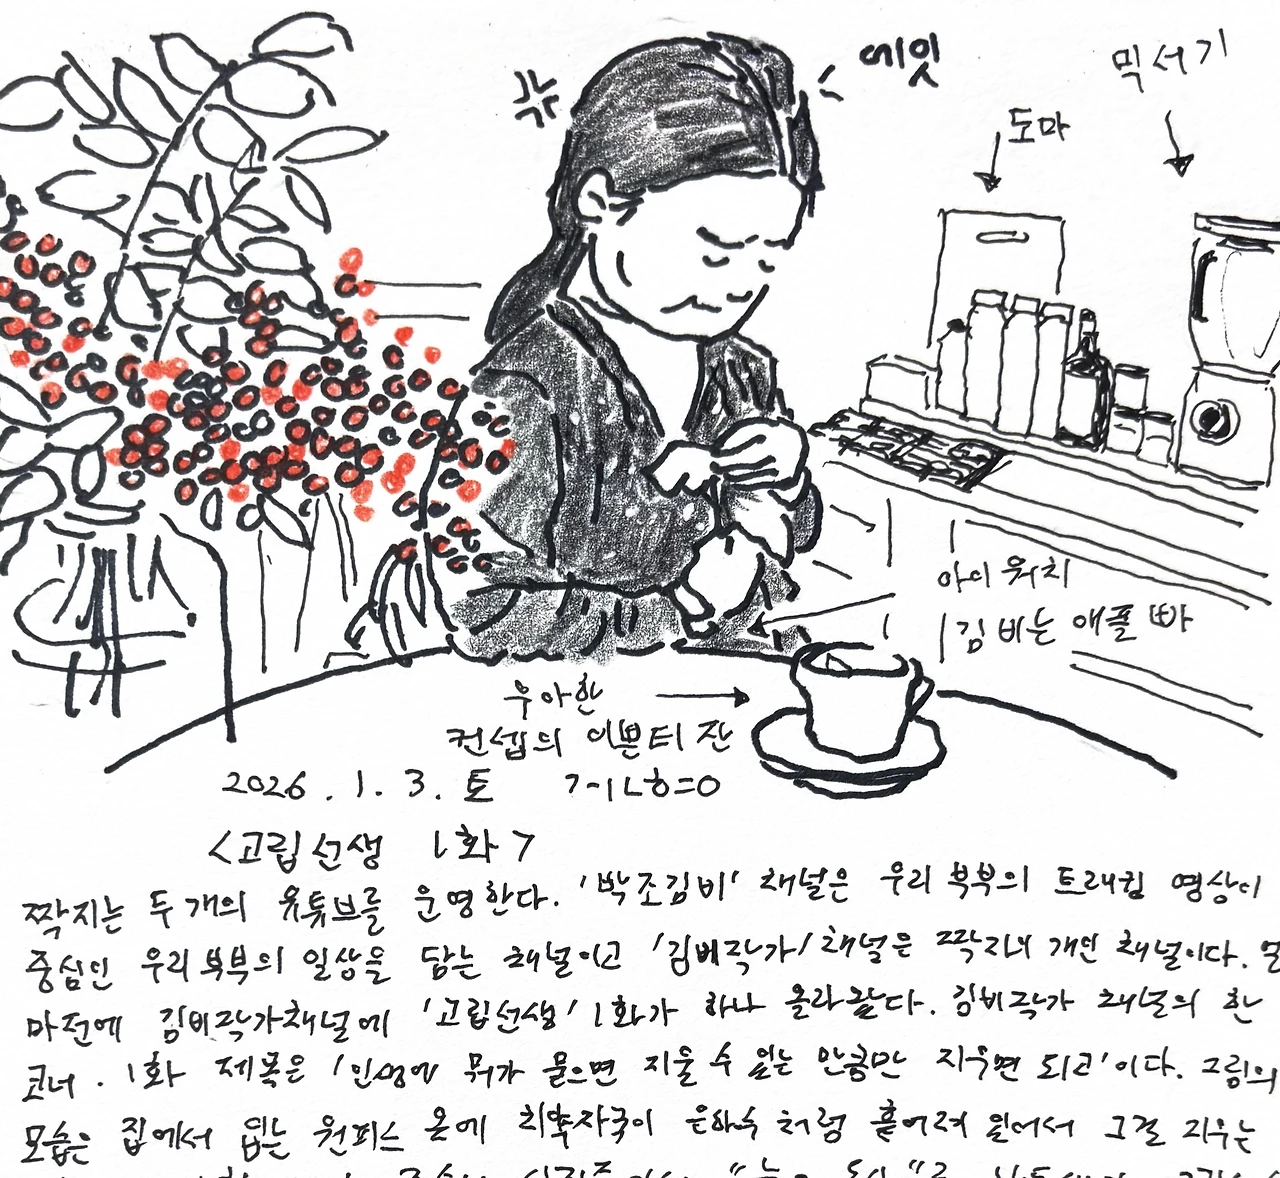 에잇
믹서기
도마
아이워치
김비는 애플빠
우아한
컨셉의 이쁜 티 잔
2026. 1. 3. 토 ㄱㅓㄴㅎ=ㅇ
<고립선생 1화>
짝지는 두 개의 유튜브를 운영한다. '박조김비' 채널은 우리 부부의 트래킹 영상이
중심인 우리 부부의 일상을 담는 채널이고 '김비작가' 채널은 짝지의 개인 채널이다. 얼
마전에 김비작가채널에 '고립선생' 1화가 하나 올라왔다. 김비작가 채널의 한
코너. 1화 제목은 '인생에 뭐가 묻으면 지울 수 있는 만큼만 지우면 되고'이다. 그림의
모습은 집에서 입는 원피스 옷에 치약자국이 은하수처럼 흩어져 있어서 그걸 지우는